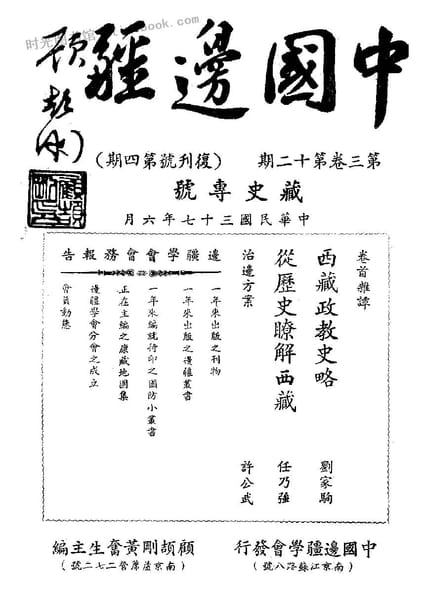 中國邊疆
顧頡剛
第三卷第十二期 （復刊號第四期）
藏史專號
中華民國三十七年六月
卷首雜譚
西藏政教史略 劉家駒
從歷史瞭解西藏 任乃強
治邊方案 許公武
邊疆學會會務報告
一年來出版之刊物
一年來出版之邊疆叢書
一年來編就待印之國防小叢書
正在主編之康藏地圖集
邊疆學會分會之成立
會員動態
中國邊疆學會發行
（南京江蘇路八號）
顧頡剛黃奮生主編
（南京蘆蓆營二七二號）